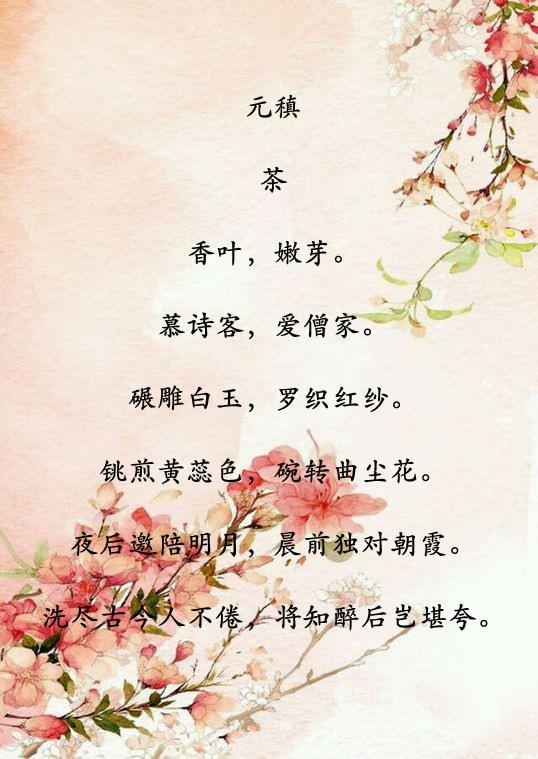 元稹
茶
香叶，嫩芽。
慕诗客，爱僧家。
碾雕白玉，罗织红纱。
铫煎黄蕊色，碗转曲尘花。
夜后邀陪明月，晨前独对朝霞。
洗尽古今人不倦，将知醉后岂堪夸。